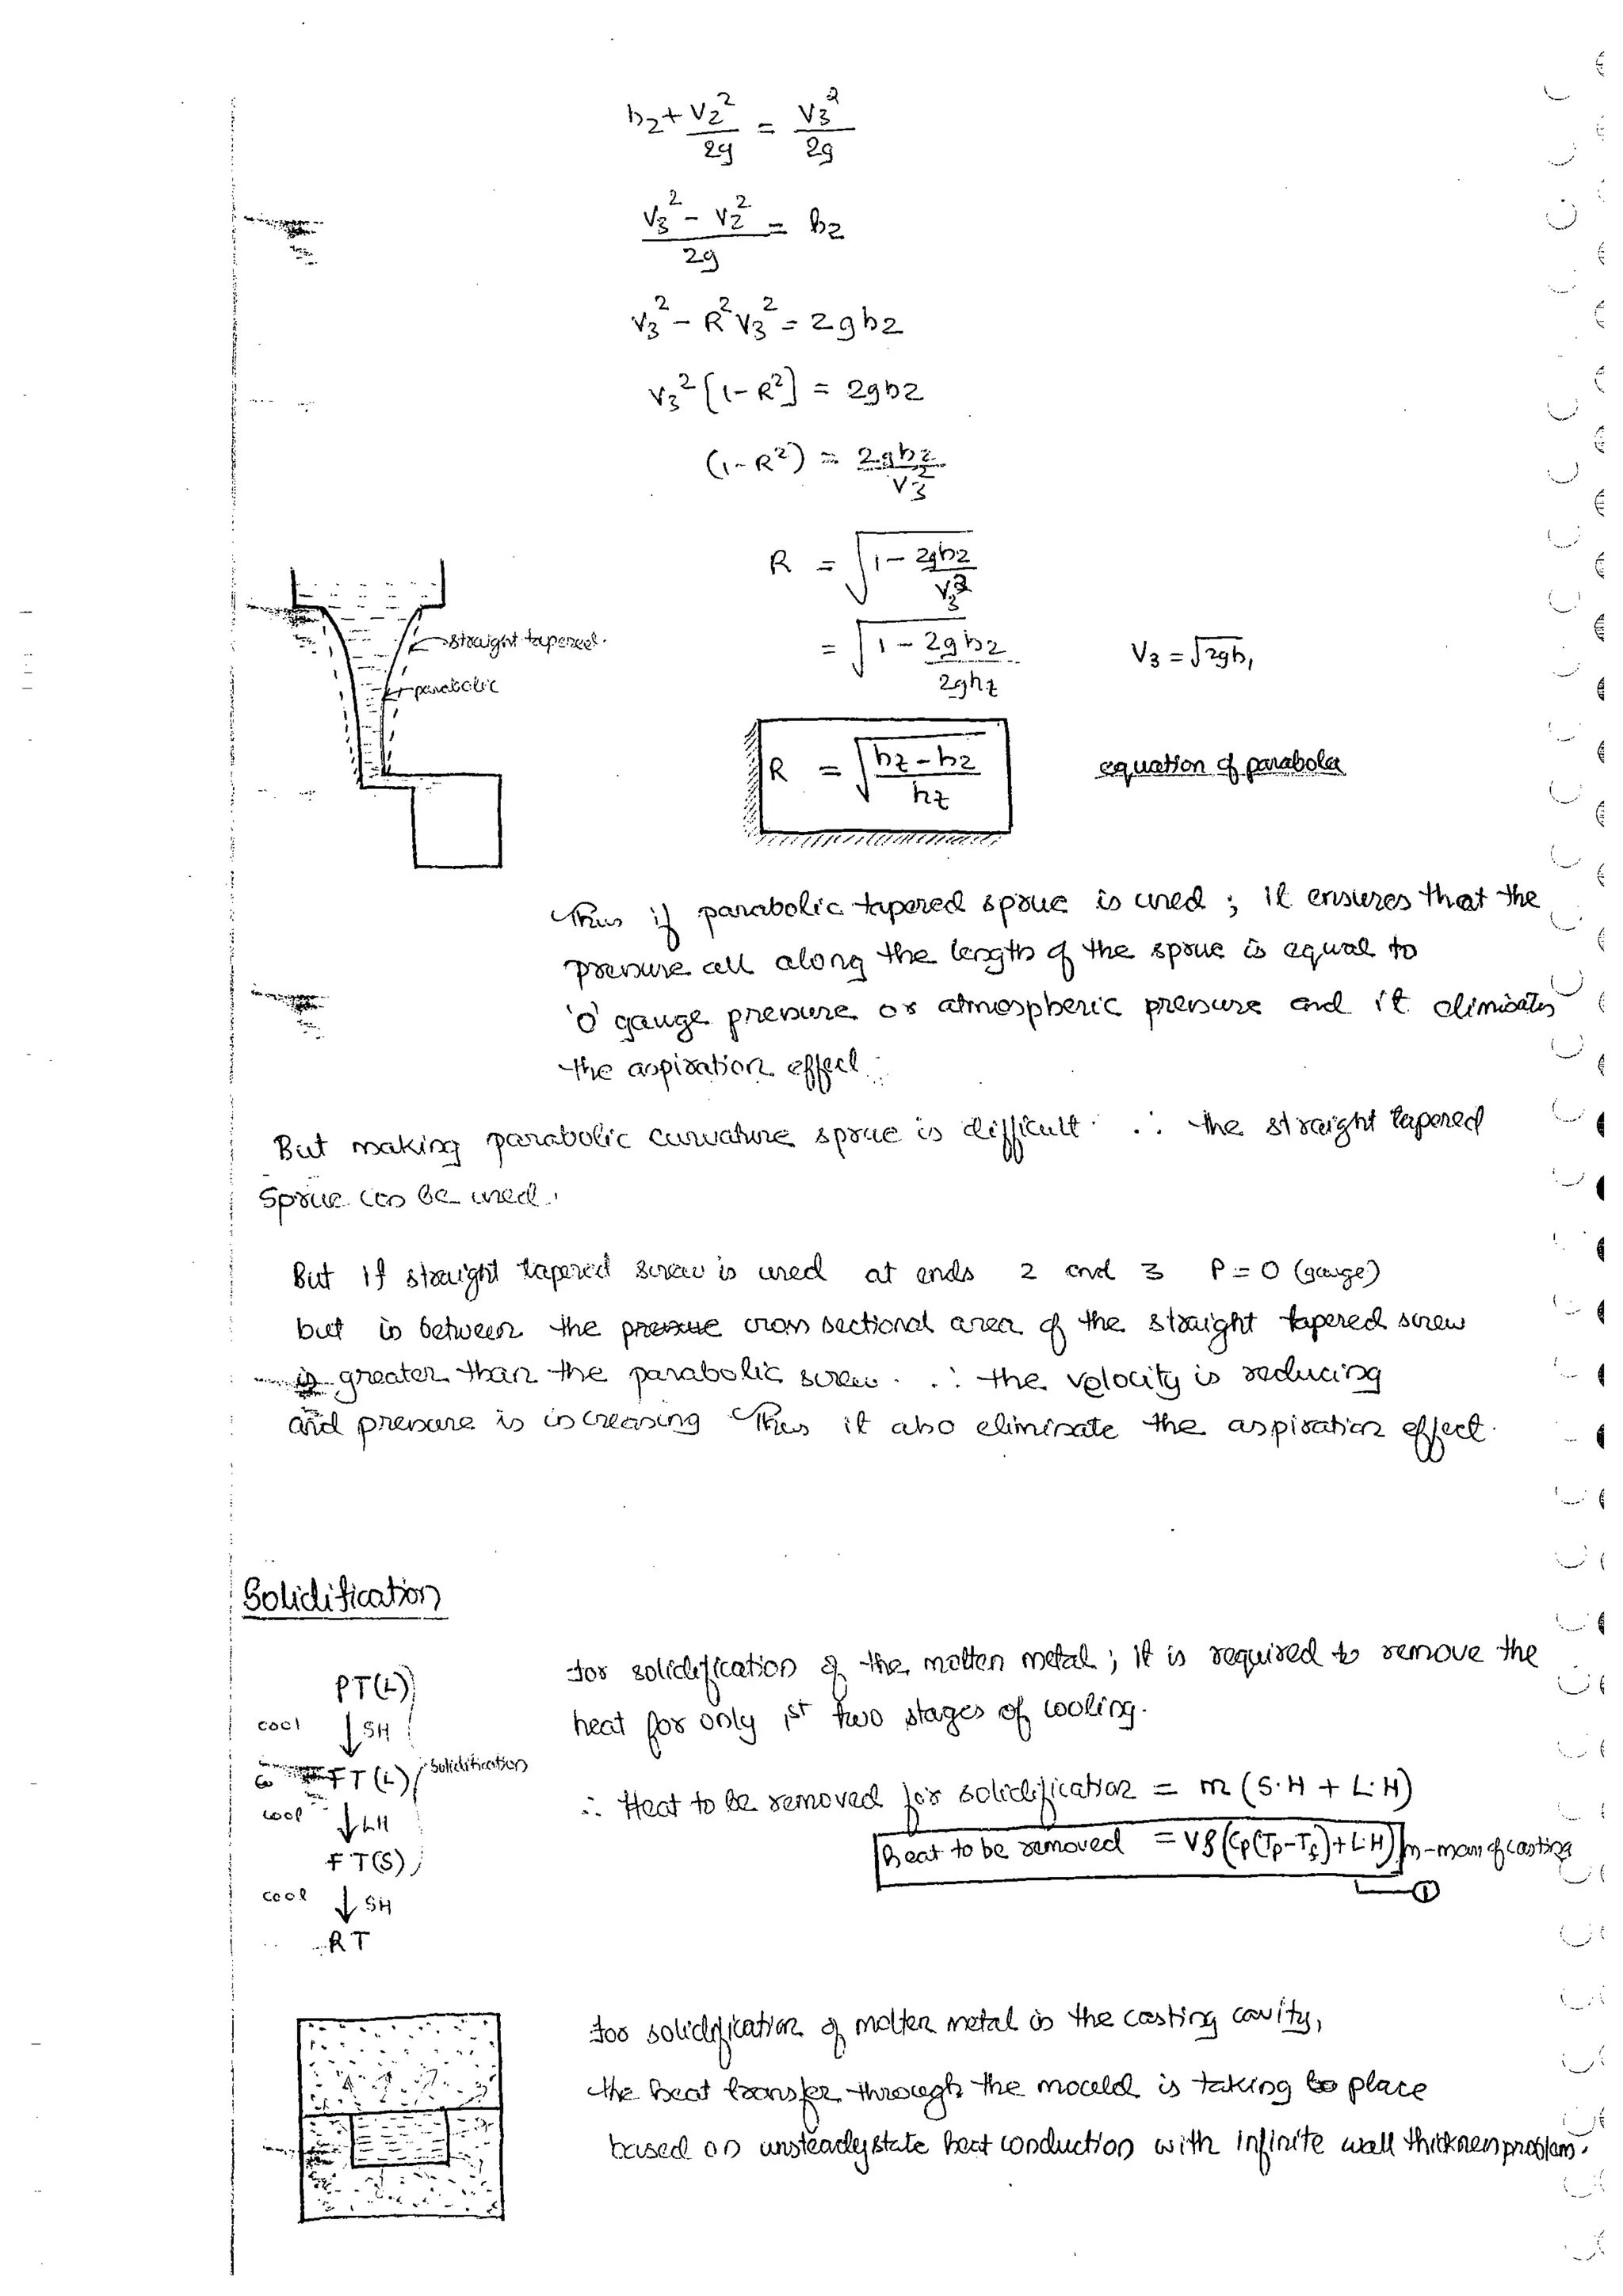 h2 + V2²/2g = V3²/2g
(V3² - V2²)/2g = h2
V3² - R²V3² = 2gh2
V3² [1 - R²] = 2gh2
(1 - R²) = 2gh2/V3²
R = √(1 - 2gh2/V3²)
straight tapered.
= √(1 - 2gh2/2ght)
V3 = √2gh,
parabolic
R = √((ht - h2)/ht)
equation of parabola
Thus if parabolic tapered sprue is used ; it ensures that the
pressure all along the length of the sprue is equal to
'0' gauge pressure or atmospheric pressure and it eliminates
the aspiration effect.
But making parabolic curvature sprue is difficult. ∴ the straight tapered
sprue can be used.
But if straight tapered screw is used at ends 2 and 3 P = 0 (gauge)
but in between the pressure cross sectional area of the straight tapered screw
is greater than the parabolic screw. ∴ the velocity is reducing
and pressure is increasing Thus it also eliminate the aspiration effect.
Solidification
for solidification of the molten metal ; it is required to remove the
heat for only 1st two stages of cooling.
PT(L)
cool ↓ SH
FT(L)
Solidification
cool ↓ LH
FT(S)
cool ↓ SH
RT
∴ Heat to be removed for solidification = m (S.H + L.H)
heat to be removed = Vρ (Cp(Tp-Tf)+L.H) m-mass of casting
①
for solidification of molten metal in the casting cavity,
the heat transfer through the mould is taking to place
based on unsteady state heat conduction with infinite wall thickness problem.